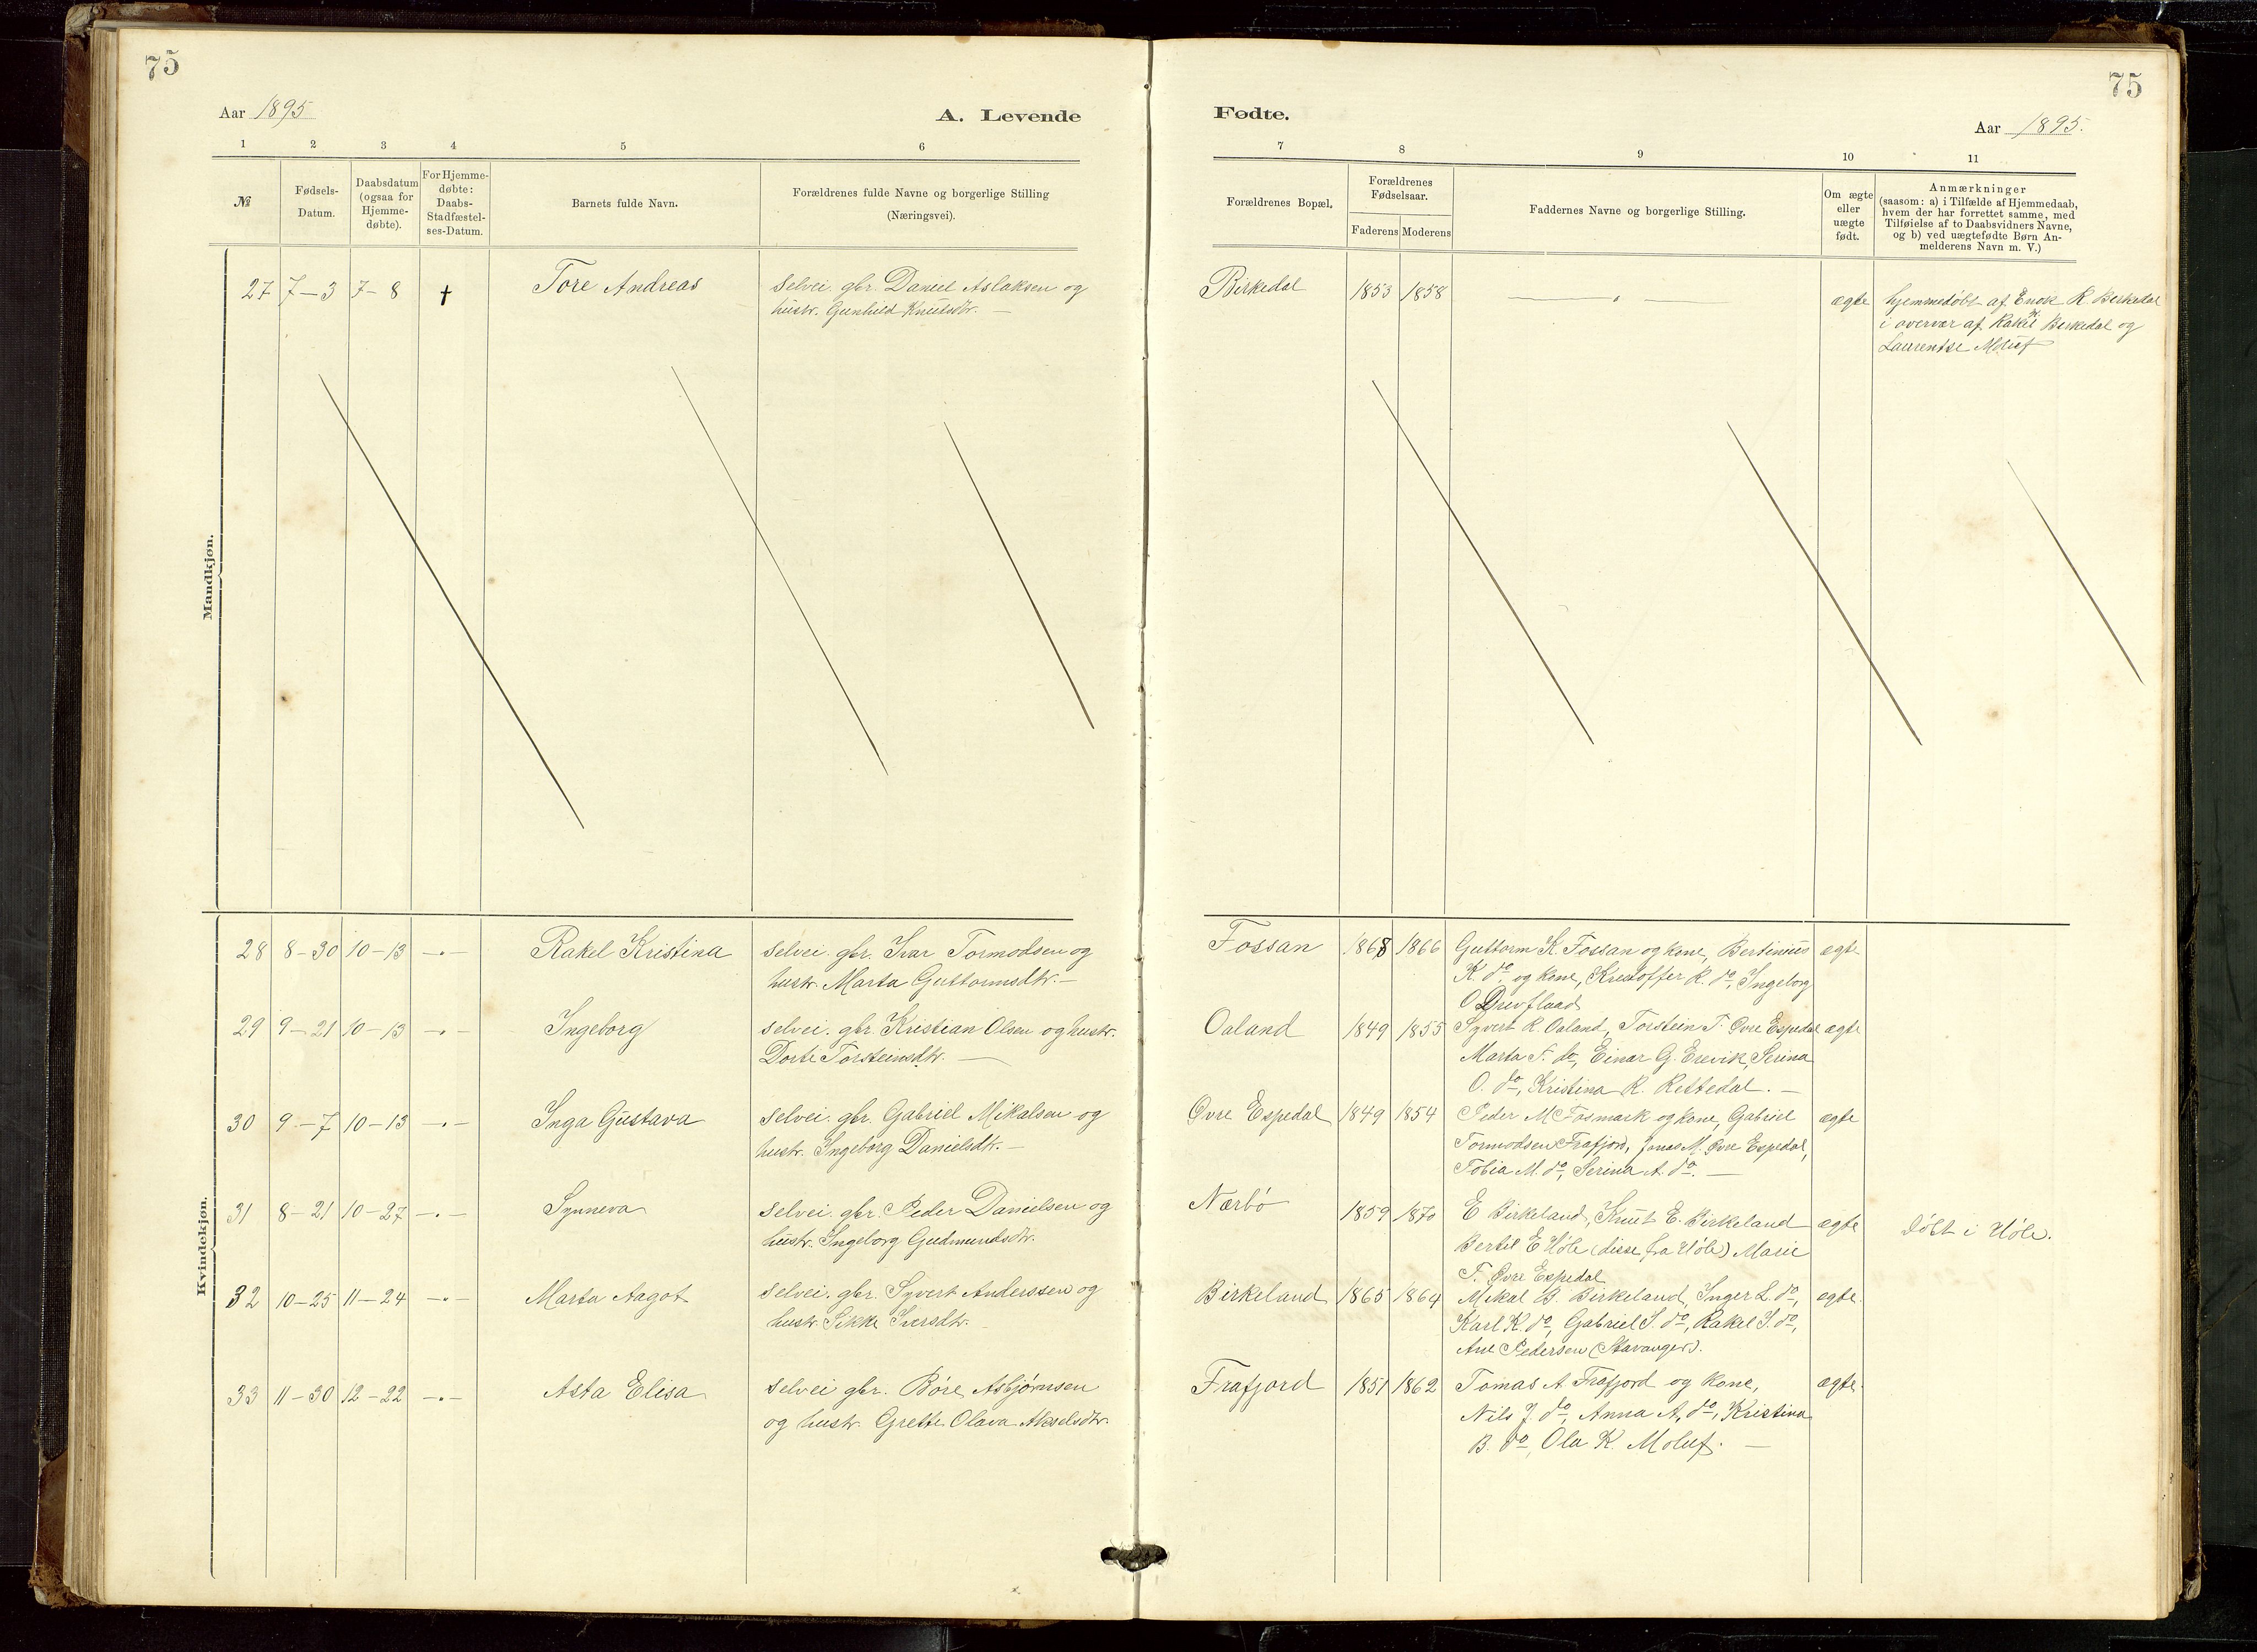 75
75
Aar 1895
A. Levende
Fødte.
Aar 1895.
1 2 3 4 5 6 7 8 9 10 11
№
Fødsels-
Datum.
Daabsdatum
(ogsaa for
Hjemme-
døbte).
For Hjemme-
døbte:
Daabs-
Stadfæstel-
ses-Datum.
Barnets fulde Navn.
Forældrenes fulde Navne og borgerlige Stilling
(Næringsvei).
Forældrenes Bopæl.
Forældrenes
Fødselsaar.
Faderens Moderens
Faddernes Navne og borgerlige Stilling.
Om ægte
eller
uægte
født.
Anmærkninger
(saasom: a) i Tilfælde af Hjemmedaab,
hvem der har forrettet samme, med
Tilføielse af to Daabsvidners Navne,
og b) ved uægtefødte Børn An-
melderens Navn m. V.)
Mandkjøn.
27 7-3 7-8 † Tore Andreas
selvei. gbr. Daniel Aslaksen og
hustr. Gunhild Knutsdtr. —
Birkedal 1853 1858 — " — ægte
hjemmedöbt af Enok R. Birkedal
i overvær af Rakel K. Birkedal og
Laurentse Moluf
Kvindekjøn.
28 8-30 10-13 -"- Rakel Kristina
selvei. gbr. Ivar Tormodsen og
hustr. Marta Guttormsdtr. —
Fossan 1868 1866
Guttorm K. Fossan og kone, Bertinius
K. do og kone, Kristoffer R. do, Ingeborg
O
ægte
29 9-21 10-13 -"- Ingeborg
selvei. gbr. Kristian Olsen og hustr.
Dorte Torsteinsdtr. —
Oaland 1849 1855
Syvert R. Oaland, Torstein T. Øvre Espedal
Marta T. do, Einar G. Erevik, Serina
O. do, Kristina R. Rettedal. —
ægte
30 9-7 10-13 -"- Inga Gustava
selvei. gbr. Gabriel Mikalsen og
hustr. Ingeborg Danielsdtr. —
Øvre Espedal 1849 1854
Peder M Fosmark og kone, Gabriel
Tormodsen Frafjord, Jonas M. Øvre Espedal,
Tobia M. do, Serina A. do. —
ægte
31 8-21 10-27 -"- Synneva
selvei. gbr. Peder Danielsen og
hustr. Ingeborg Gudmundsdtr.
Nærbö 1859 1870
E Birkeland, Knut E. Birkeland
Bertil E Höle (disse fra Höle) Marie
T. Øvre Espedal
ægte
Döbt i Höle.
32 10-25 11-24 -"- Marta Aagot
selvei. gbr. Syvert Anderssen og
hustr. Sikke Iversdtr. —
Birkeland 1865 1864
Mikal B. Birkeland, Inger L. do,
Karl K. do, Gabriel S. do, Rakel S. do,
Ane Pedersen (Stavanger).
ægte.
33 11-30 12-22 -"- Asta Elisa
selvei gbr. Böre Asbjørnsen
og hustr. Grette Olava Akselsdtr.
Frafjord 1851 1862
Tomas A. Frafjord og kone,
Nils J. do, Anna A. do, Kristina
B. do, Ola K. Moluf. —
ægte.